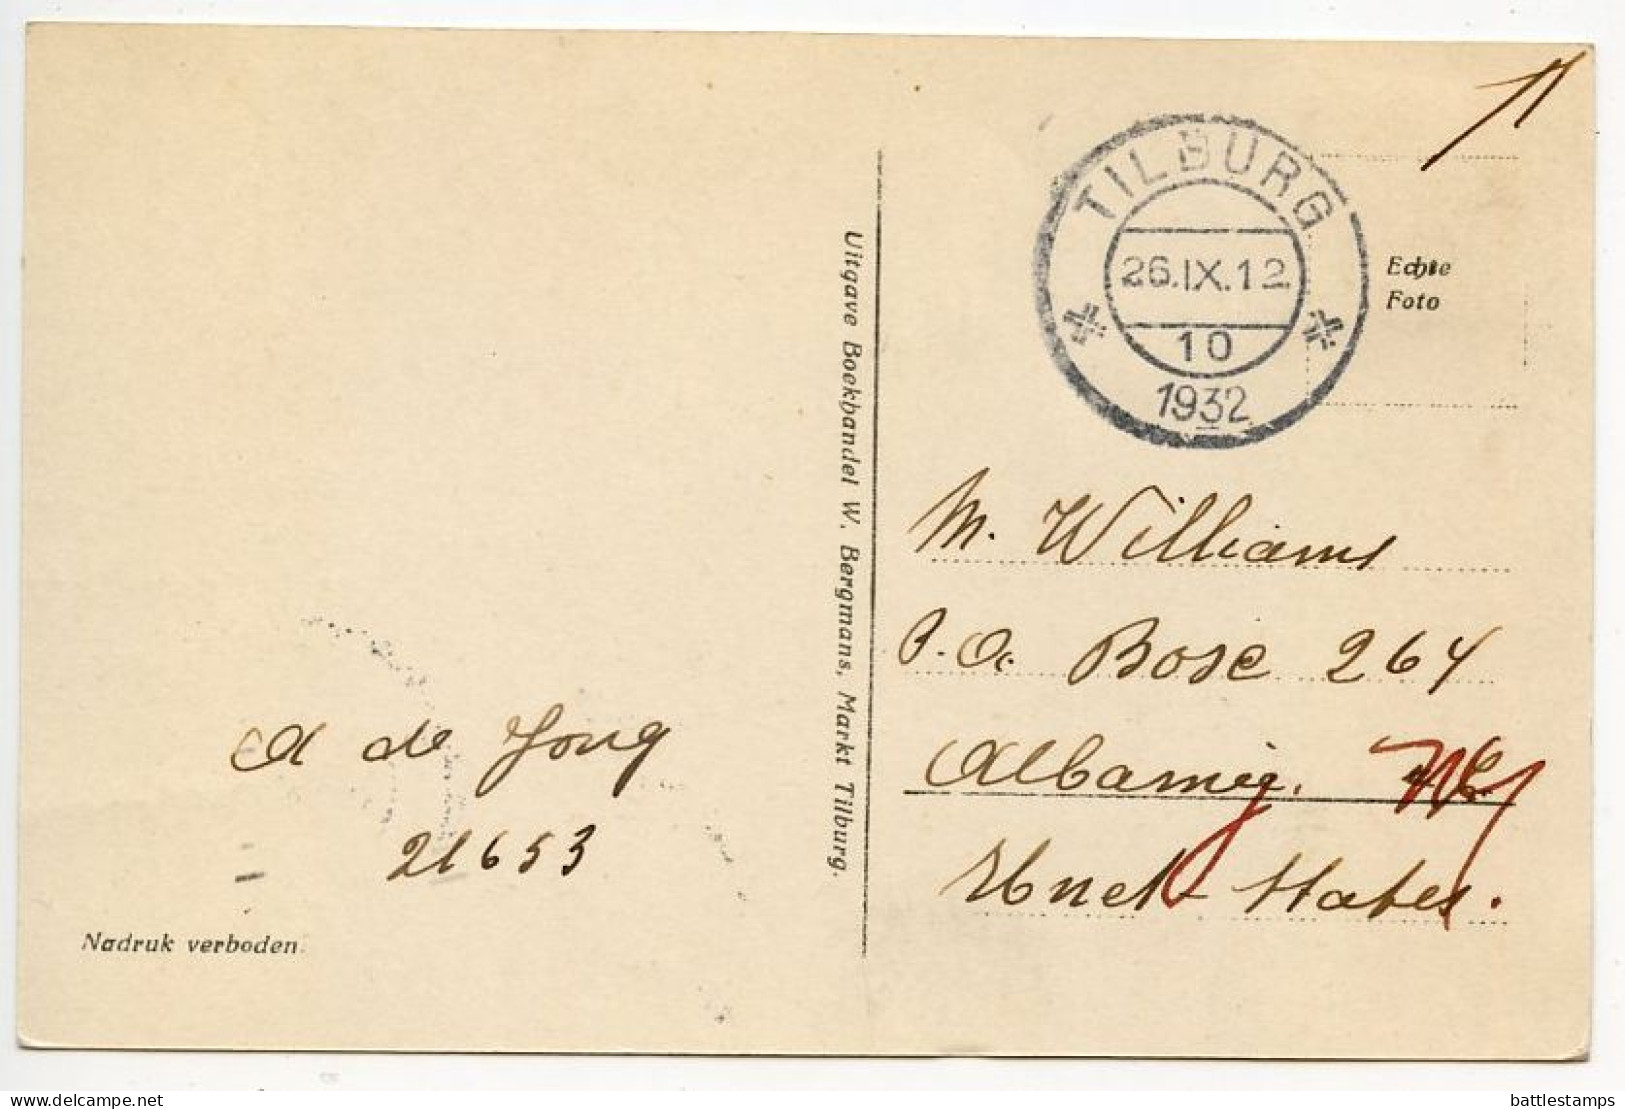 TILBURG
26.IX.12
10
1932
Echte
Foto
Uitgave Boekhandel W. Bergmans, Markt Tilburg.
M. Williams
P.O. Bose 264
Albany
A de Jong
21653
Nadruk verboden.
States.
delcampe.net
battlestamps